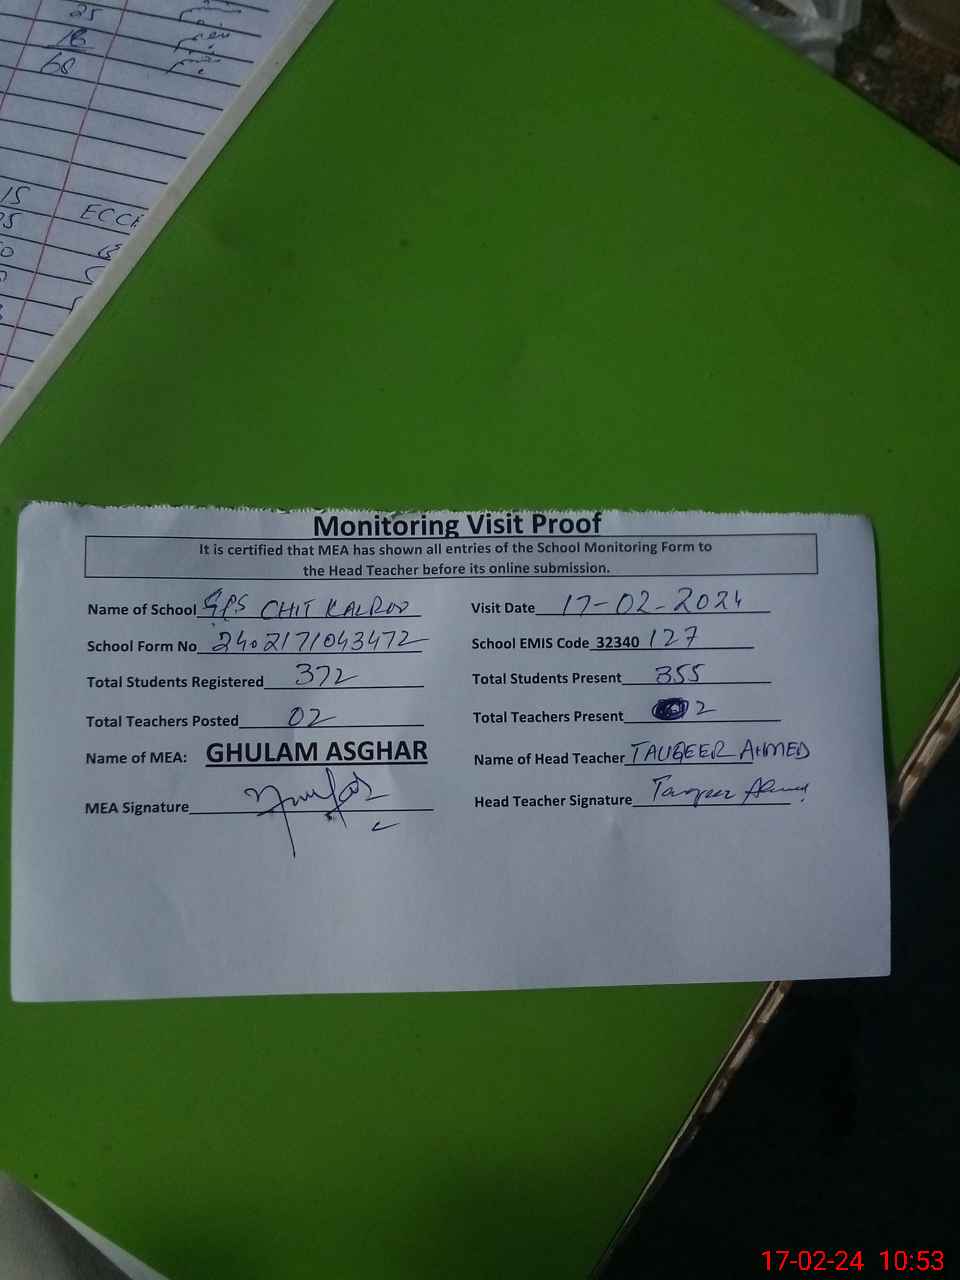 25
18
68
15
ECCE
Monitoring Visit Proof
It is certified that MEA has shown all entries of the School Monitoring Form to
the Head Teacher before its online submission.
Name of School GPS CHIT KALROO Visit Date 17-02-2024
School Form No 2402171043472 School EMIS Code 32340 127
Total Students Registered 372 Total Students Present 355
Total Teachers Posted 02 Total Teachers Present 2
Name of MEA: GHULAM ASGHAR Name of Head Teacher TAUQEER AHMED
MEA Signature Head Teacher Signature Tauqeer Ahmed
17-02-24 10:53